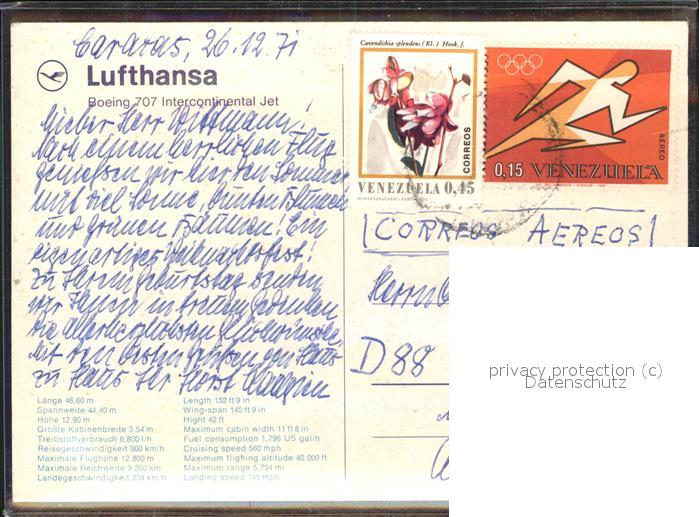 Caracas, 26.12.71
Lufthansa
Boeing 707 Intercontinental Jet
Lieber Herr
Nach einem herrlichen Flug
genießen wir hier den Sommer
mit viel Sonne, bunten Blumen
und grünen Bäumen! Ein
eigenartiges Weihnachtsfest!
Zu Ihrem Geburtstag senden
wir Ihnen in treuem Gedenken
die allerherzlichsten Glückwünsche,
Mit den besten Grüßen von Haus
zu Haus Ihr Horst
Länge 46,60 m
Spannweite 44,40 m
Höhe 12,90 m
Größte Kabinenbreite 3,54 m
Treibstoffverbrauch 6.800 l/h
Reisegeschwindigkeit 900 km/h
Maximale Flughöhe 12.800 m
Maximale Reichweite 9.260 km
Landegeschwindigkeit 234 km/h
Length 152 ft 9 in
Wing-span 145 ft 9 in
Hight 42 ft
Maximum cabin width 11 ft 8 in
Fuel consumption 1,796 US gal/h
Cruising speed 560 mph
Maximum flighing altitude 40,000 ft
Maximum range 5,754 mi
Landing speed 145 mph
Cavendishia splendens (Kl.) Hook. f.
CORREOS
VENEZUELA 0,45
AEREO
0,15 VENEZUELA
CORREOS AEREOS
Herrn
D 88
privacy protection (c)
Datenschutz